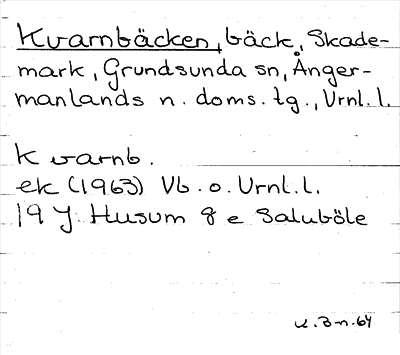 Kvarnbäcken, bäck, Skade-
mark, Grundsunda sn, Ånger-
manlands n. doms. tg., Vrnl. l.
Kvarnb.
ek (1963) Vb. o. Vrnl. l.
19 J Husum 8 e Saluböle